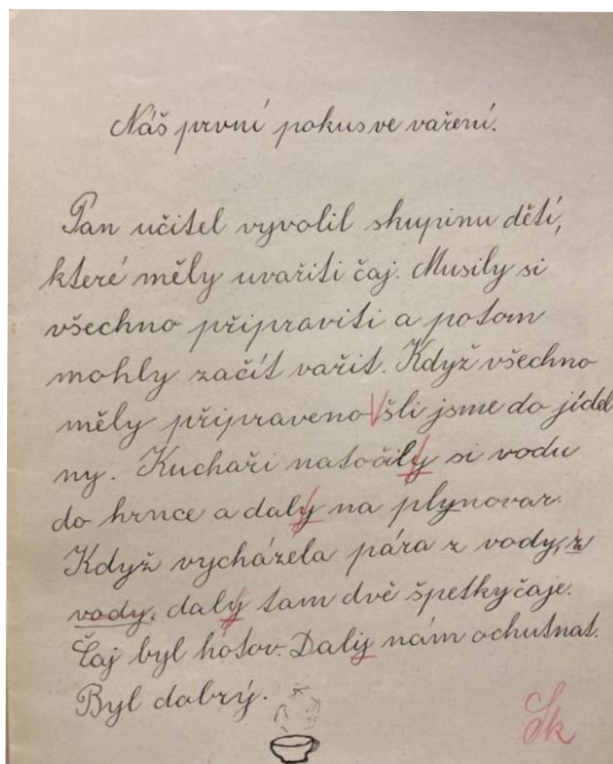 Náš první pokus ve vaření.
Pan učitel vyvolil skupinu dětí,
které měly uvařiti čaj. Musily si
všechno připraviti a potom
mohly začít vařit. Když všechno
měly připraveno šli jsme do jídel
ny. Kuchaři natočily si vodu
do hrnce a daly na plynovar.
Když vycházela pára z vody, z
vody, daly tam dvě špetky čaje.
Čaj byl hotov. Daly nám ochutnat.
Byl dobrý.
Sk